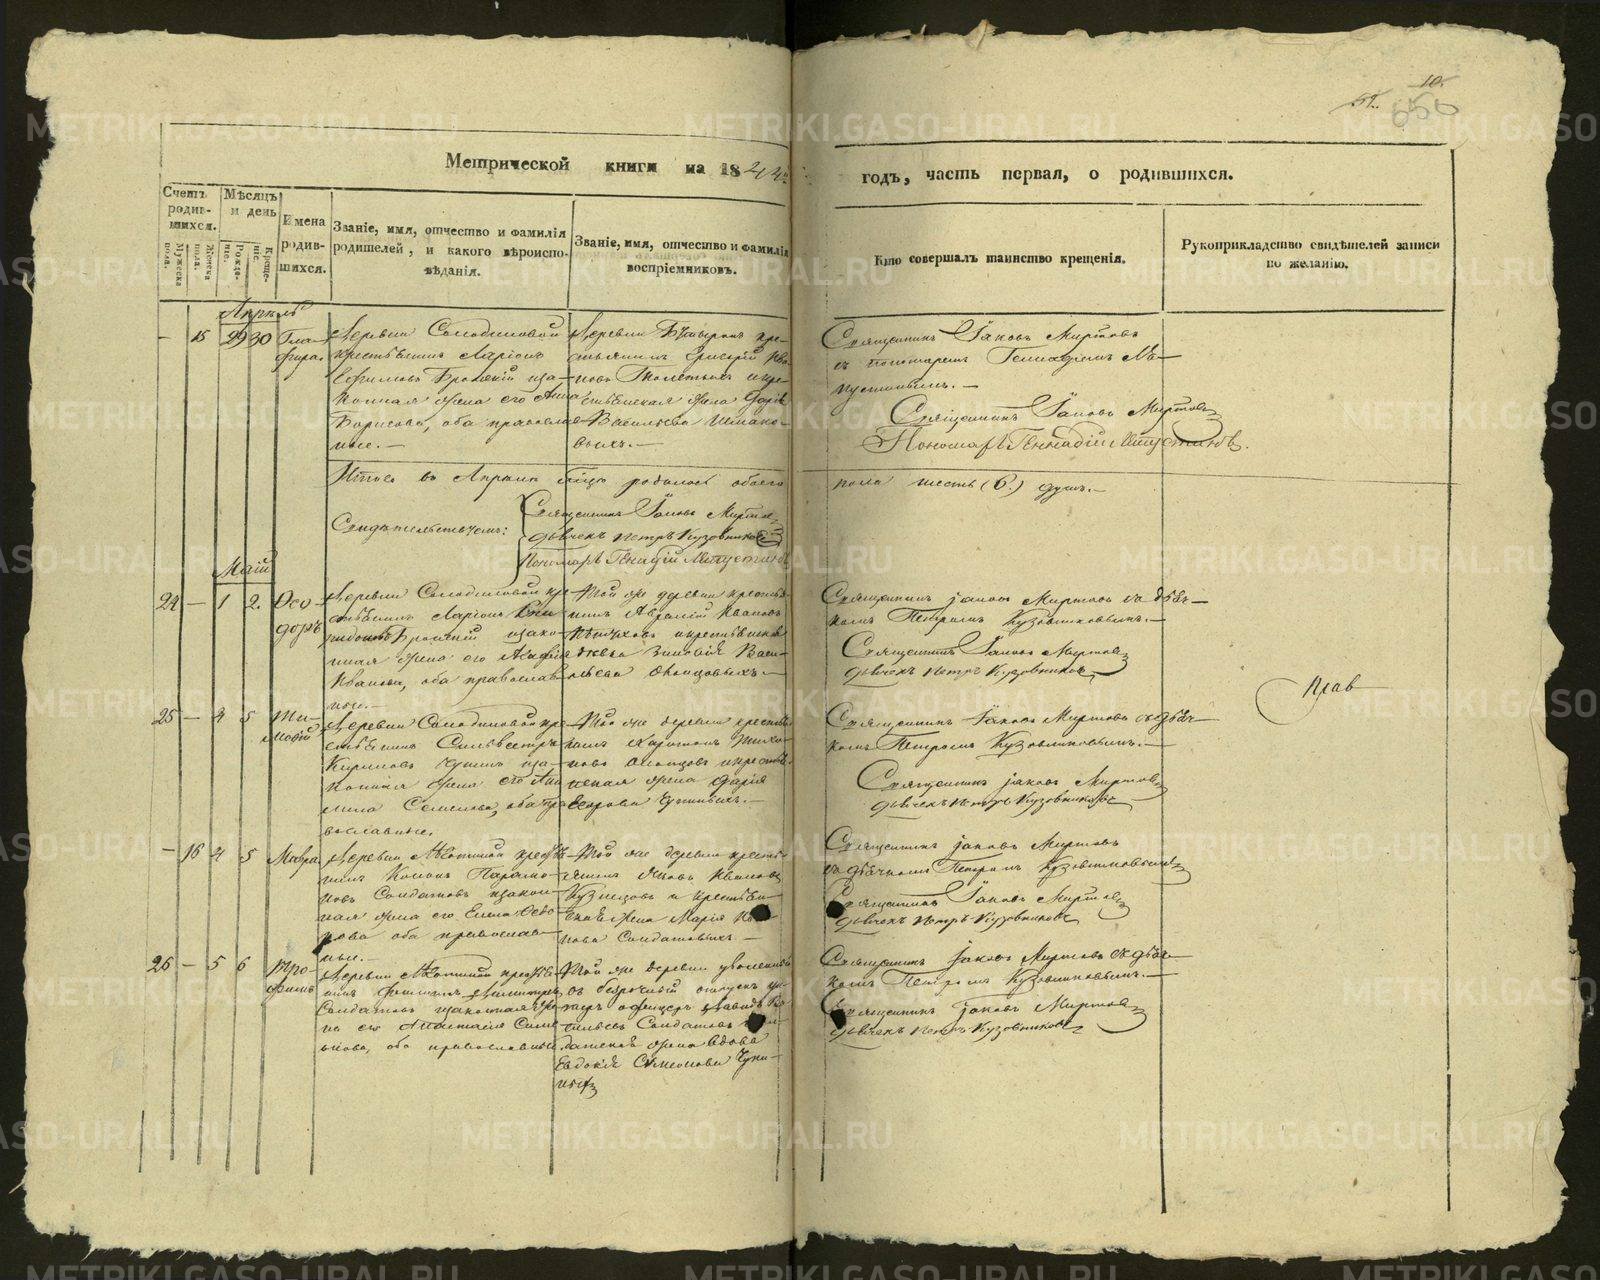 10.
52.
650
Метрической книги на 1844 годъ, часть первая, о родившихся.
Счетъ родившихся.
Мужеска пола.
Женска пола.
Мѣсяцъ и день
Рожденіе.
Крещеніе.
Имена родившихся.
Званіе, имя, отчество и фамилія родителей, и какого вѣроисповѣданія.
Званіе, имя, отчество и фамилія воспріемниковъ.
Кто совершалъ таинство крещенія.
Рукоприкладство свидѣтелей записи по желанію.
Апрѣль
— 15 29 30 Гла-
фира.
Деревни Солодиловой
крестьянинъ Ларіонъ
зако-
нная жена его Анна
Борисова, оба православ-
ные.—
Деревни кре-
стьянинъ Григорій Ива-
новъ и кре-
стьянская жена Дарія
Васильева
Священникъ Іаковъ Миртовъ
съ пономаремъ Геннадіемъ
Священникъ Іаковъ Миртовъ
Пономарь Геннадій
Итого въ Апрѣлѣ м-цѣ родилось обоего пола шесть (6.) душъ.—
Свидѣтельствуемъ:
Священникъ Іаковъ Миртовъ
дьячекъ Петръ Кузовниковъ
Пономарь Геннадій
Маій
24 — 1 2. Ѳео-
доръ
Деревни Солодиловой кре-
стьянинъ Ларіонъ
зако-
нная жена его
Иванова, оба православ-
ные.—
Той же деревни крестья-
нинъ Иванов
и крестьянская
Васи-
льева
Священникъ Іаковъ Миртовъ съ дьяч-
комъ Петромъ Кузовниковымъ.—
Священникъ Іаковъ Миртовъ
дьячекъ Петръ Кузовниковъ
25 — 4 5 Ти-
моѳій
Деревни Солодиловой кре-
стьянинъ Сильвестръ
Кириловъ Чупинъ зако-
нная жена его
Семенова, оба пра-
вославные.
Той же деревни крестья-
нинъ Харитонъ Тихо-
новъ и крестья-
нская жена Дарія
Егорова Чупиныхъ.—
Священникъ Іаковъ Миртовъ съ дьяч-
комъ Петромъ Кузовниковымъ.—
Священникъ Іаковъ Миртовъ
дьячекъ Петръ Кузовниковъ
— 16 4 5 Мавра
Деревни крестья-
нинъ Кононъ Парамо-
новъ Солдатовъ законн-
ная жена его Елена Ѳедо-
рова оба православ-
ные.—
Той же деревни кресть-
янинъ Яковъ Ивановъ
Кузнецовъ и крестьян-
ская жена Марія
Солдатовыхъ.—
Священникъ Іаковъ Миртовъ
съ дьячкомъ Петромъ Кузовниковымъ
Священникъ Іаковъ Миртовъ
дьячекъ Петръ Кузовниковъ
26 — 5 6 Тро-
фимъ
Деревни крестья-
нинъ
Солдатовъ законная же-
на его Анастасія
оба православные
Той же деревни уволенный
въ безсрочный отпускъ ун-
теръ офицеръ Давидъ Ва-
сильевъ Солдатовъ и сол-
датская жена вдова
Евдокія Симеонова Чупи-
ныхъ
Священникъ Іаковъ Миртовъ съ дьяч-
комъ Петромъ Кузовниковымъ.—
Священникъ Іаковъ Миртовъ
дьячекъ Петръ Кузовниковъ
METRIKI.GASO-URAL.RU